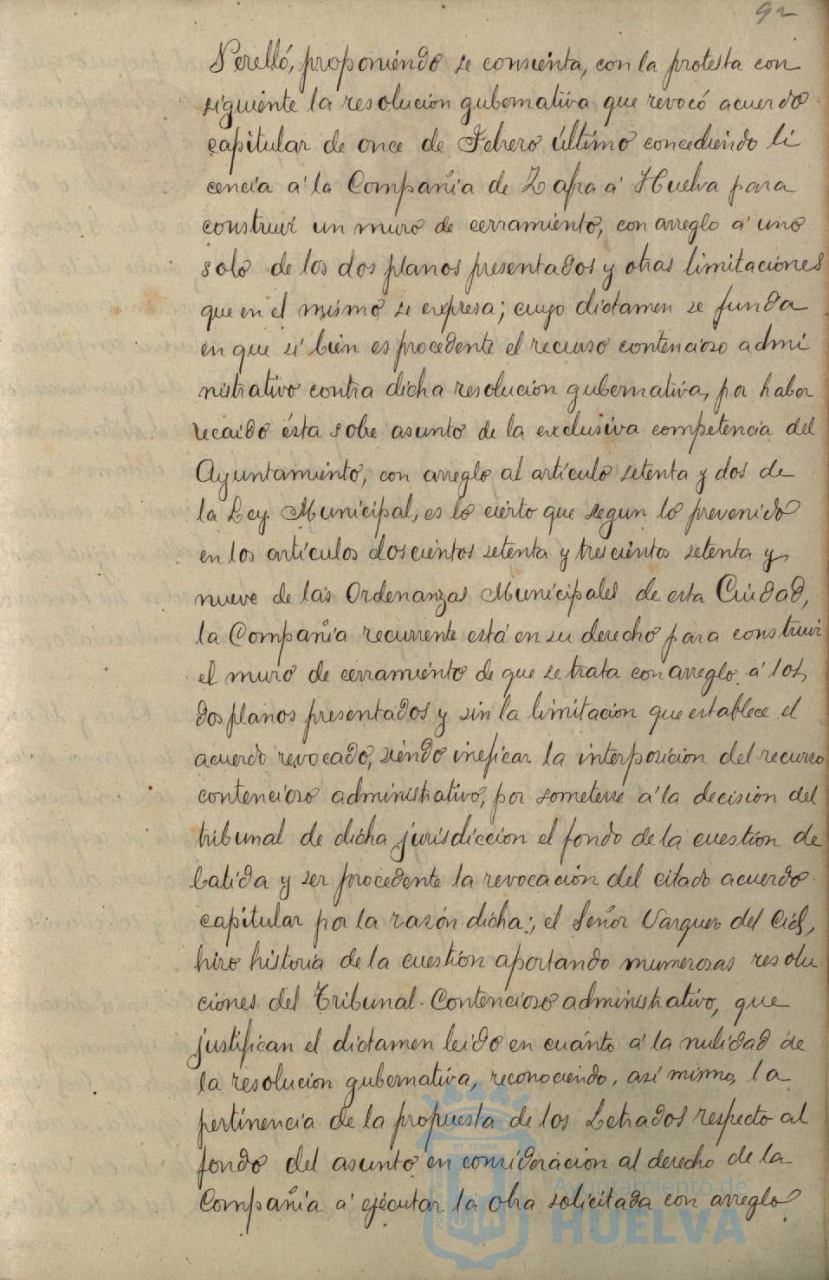 92
Perelló, proponiendo se consienta, con la protesta con
siguiente la resolución gubernativa que revocó acuerdo
capitular de once de Febrero último concediendo li
cencia á la Compañia de Zafra á Huelva para
construir un muro de cerramiento, con arreglo á uno
solo de los dos planos presentados y otras limitaciones
que en el mismo se expresa; cuyo dictamen se funda
en que si bien es procedente el recurso contencioso admi
nistrativo contra dicha resolucion gubernativa, por haber
recaido ésta sobre asunto de la exclusiva competencia del
Ayuntamiento, con arreglo al artículo setenta y dos de
la Ley Municipal, es lo cierto que segun lo prevenido
en los artículos doscientos setenta y trescientos setenta y
nueve de las Ordenanzas Municipales de esta Ciudad,
la Compañia recurrente está en su derecho para construir
el muro de cerramiento de que se trata con arreglo á los
dos planos presentados y sin la limitación que establece el
acuerdo revocado, siendo ineficaz la interposición del recurso
contencioso administrativo, por someterse á la decisión del
tribunal de dicha jurisdiccion el fondo de la cuestion de
batida y ser procedente la revocación del citado acuerdo
capitular por la razón dicha; el Señor Vazquez del Cid,
hizo historia de la cuestión aportando numerosas resolu
ciones del Tribunal Contencioso administrativo, que
justifican el dictamen leido en cuánto á la nulidad de
la resolucion gubernativa, reconociendo, asi mismo, la
pertinencia de la propuesta de los Letrados respecto al
fondo del asunto en consideración al derecho de la
Compañia á ejecutar la obra solicitada con arreglo
Ayuntamiento de
HUELVA